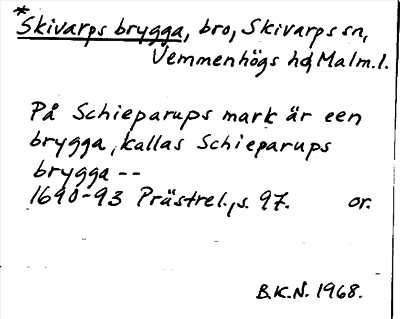 *
Skivarps brygga, bro, Skivarps sn,
Vemmenhögs hd, Malm. l.
På Schieparups mark är een
brygga, kallas Schieparups
brygga --
1690-93 Prästrel., s. 97. or.
B.K.N. 1968.